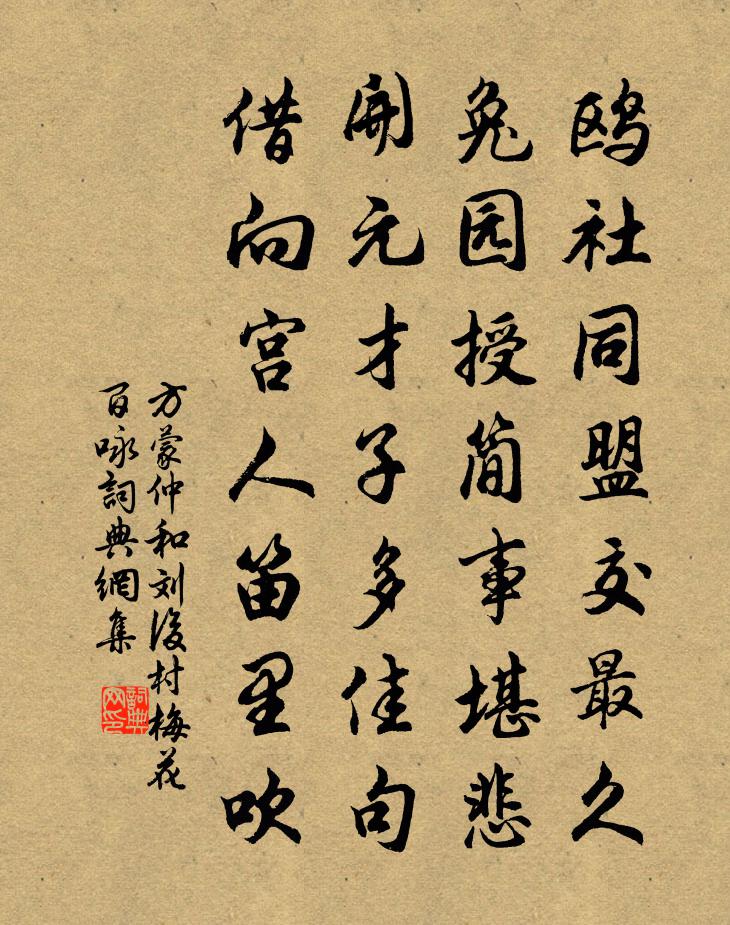 鸥社同盟交最久
兔园授简事堪悲
开元才子多佳句
借向宫人笛里吹
方蒙仲和刘后村梅花
百咏詞典網集
詞典
网印